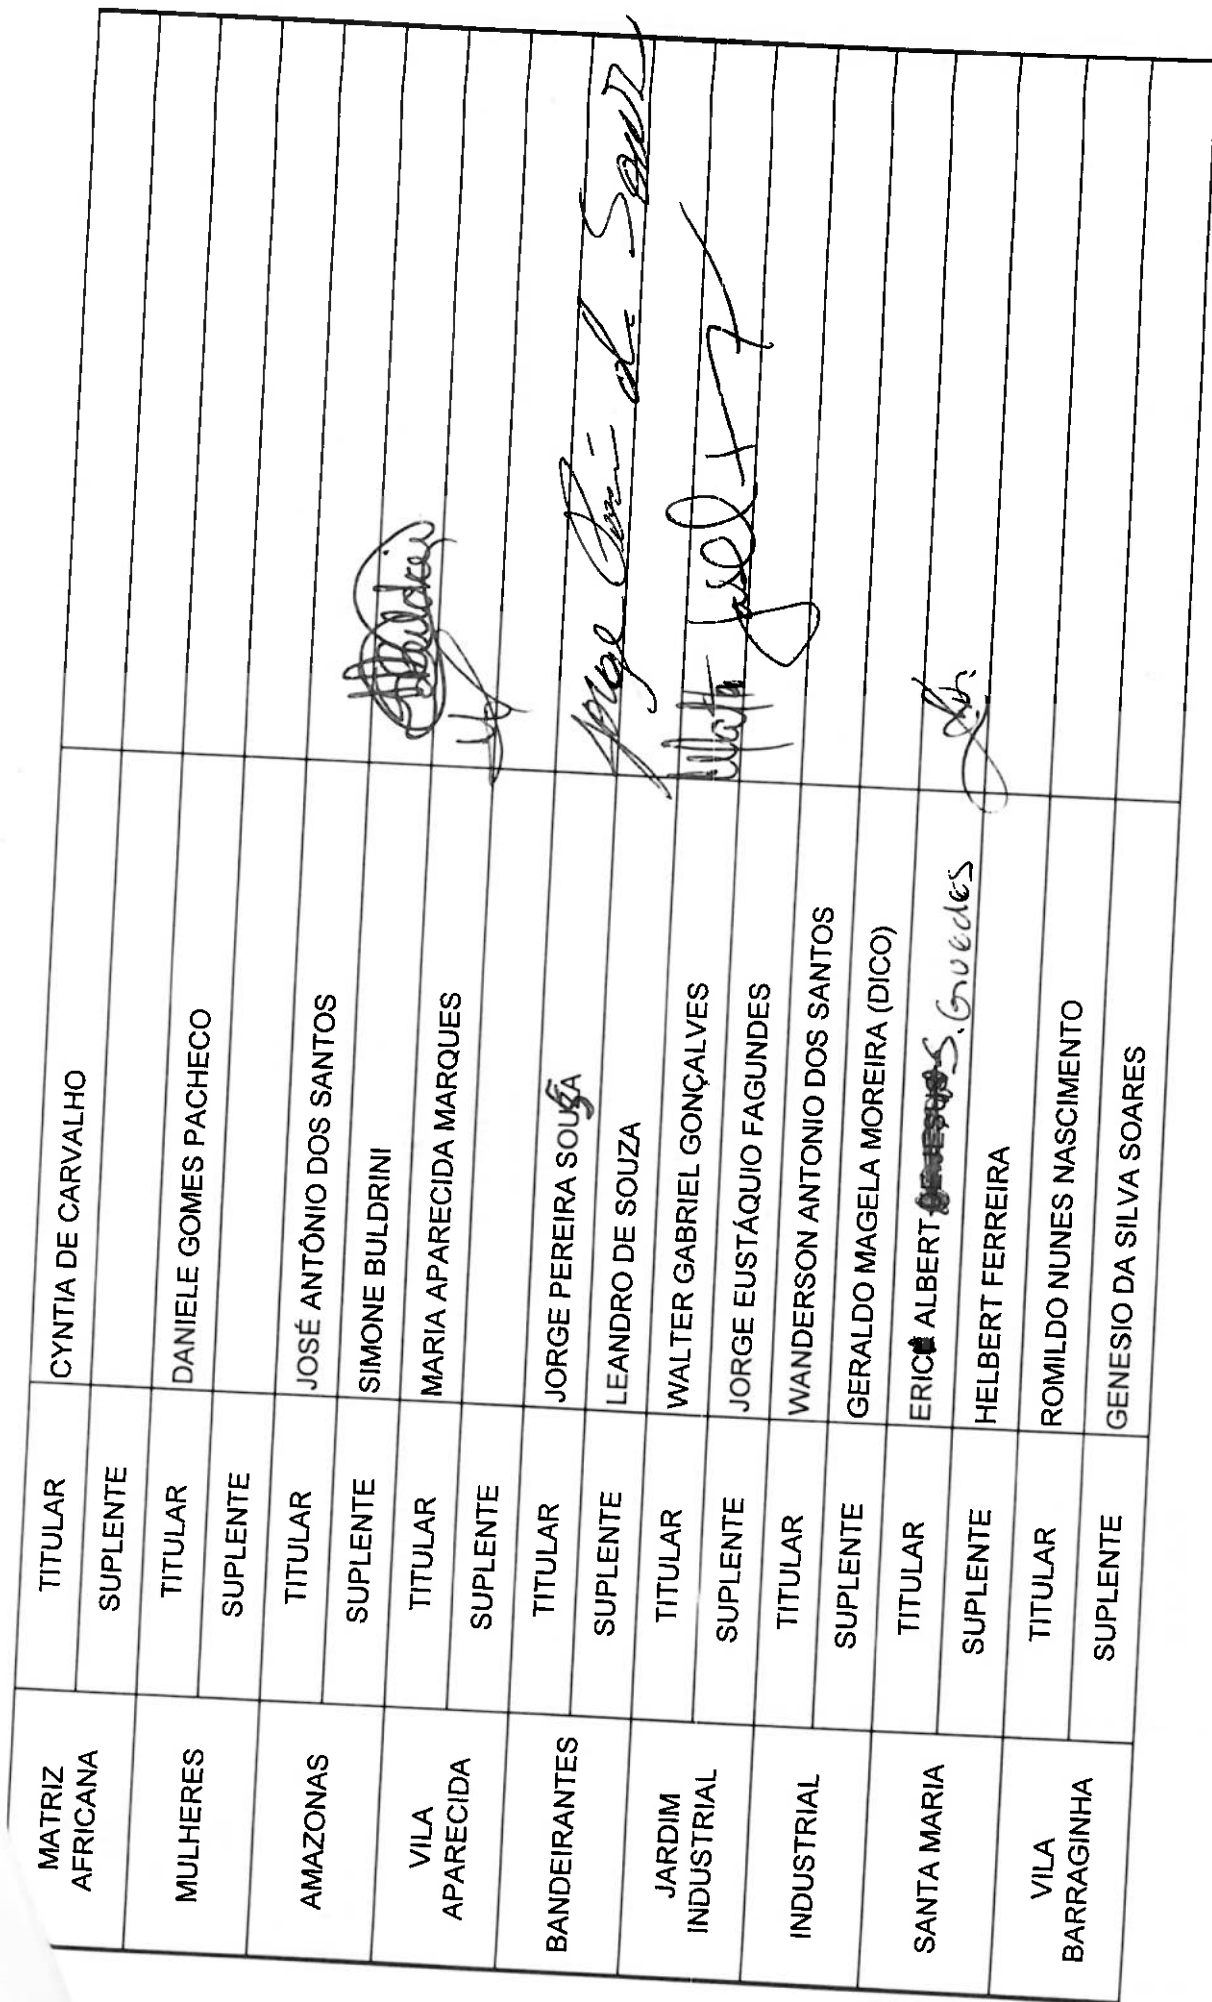 MATRIZ
AFRICANA
TITULAR CYNTIA DE CARVALHO
SUPLENTE
MULHERES
TITULAR DANIELE GOMES PACHECO
SUPLENTE
AMAZONAS
TITULAR JOSÉ ANTÔNIO DOS SANTOS
SUPLENTE SIMONE BULDRINI
VILA
APARECIDA
TITULAR MARIA APARECIDA MARQUES
SUPLENTE
BANDEIRANTES
TITULAR JORGE PEREIRA SOUZA
SUPLENTE LEANDRO DE SOUZA
JARDIM
INDUSTRIAL
TITULAR WALTER GABRIEL GONÇALVES
SUPLENTE JORGE EUSTÁQUIO FAGUNDES
INDUSTRIAL
TITULAR WANDERSON ANTONIO DOS SANTOS
SUPLENTE GERALDO MAGELA MOREIRA (DICO)
SANTA MARIA
TITULAR ERIC ALBERT S. Guedes
SUPLENTE HELBERT FERREIRA
VILA
BARRAGINHA
TITULAR ROMILDO NUNES NASCIMENTO
SUPLENTE GENESIO DA SILVA SOARES